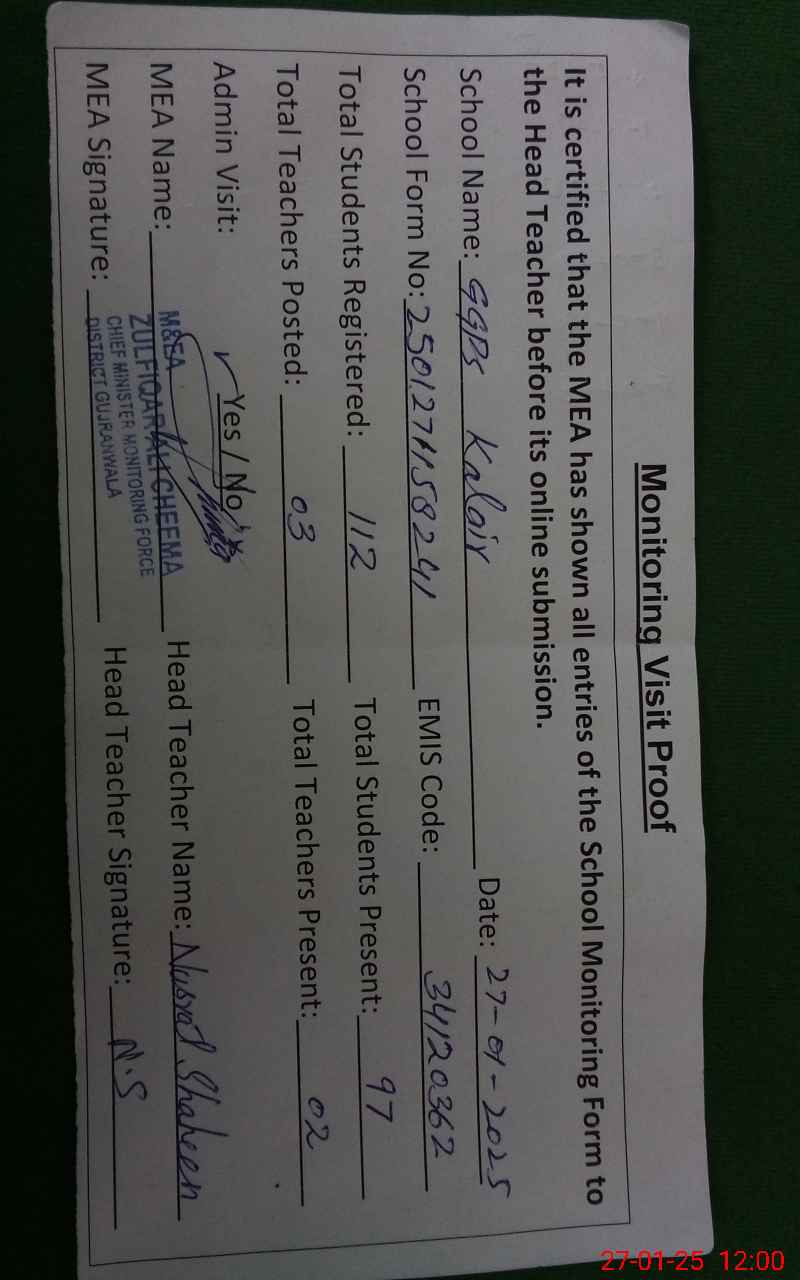 Monitoring Visit Proof
It is certified that the MEA has shown all entries of the School Monitoring Form to
the Head Teacher before its online submission.
School Name: GGPS Kalair Date: 27-01-2025
School Form No: 25012711158241 EMIS Code: 34120362
Total Students Registered: 112 Total Students Present: 97
Total Teachers Posted: 03 Total Teachers Present: 02
Admin Visit: ✓ Yes / No
MEA Name: Head Teacher Name: Nusrat Shaheen
MEA Signature: Head Teacher Signature: N.S
M&EA
ZULFIQAR ALI CHEEMA
CHIEF MINISTER MONITORING FORCE
DISTRICT GUJRANWALA
27-01-25 12:00